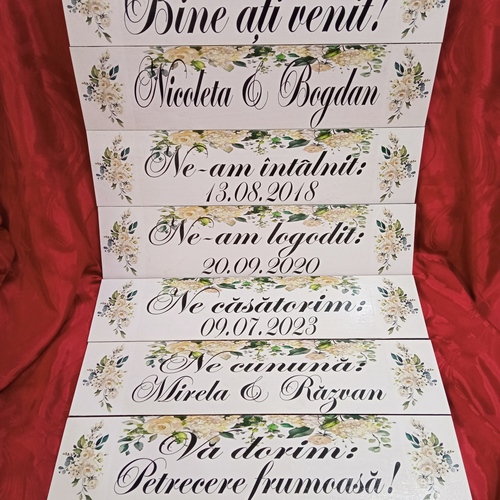 Bine ați venit!
Nicoleta & Bogdan
Ne-am întâlnit:
13.08.2018
Ne-am logodit:
20.09.2020
Ne căsătorim:
09.07.2023
Ne cunună:
Mirela & Răzvan
Vă dorim:
Petrecere frumoasă!